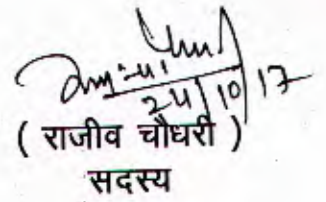 24/10/17
( राजीव चौधरी )
सदस्य